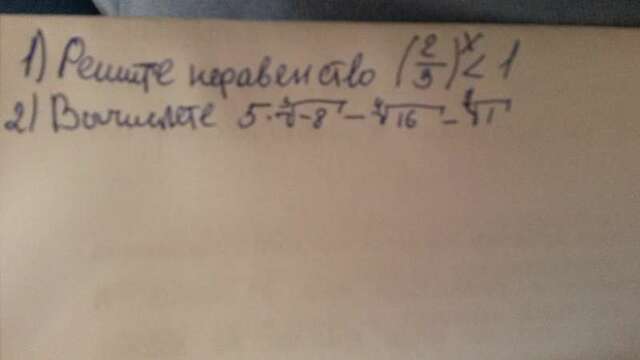 1) Решите неравенство (2/3)ˣ < 1
2) Вычислете 5·∛-8 - ∜16 - ⁸√1